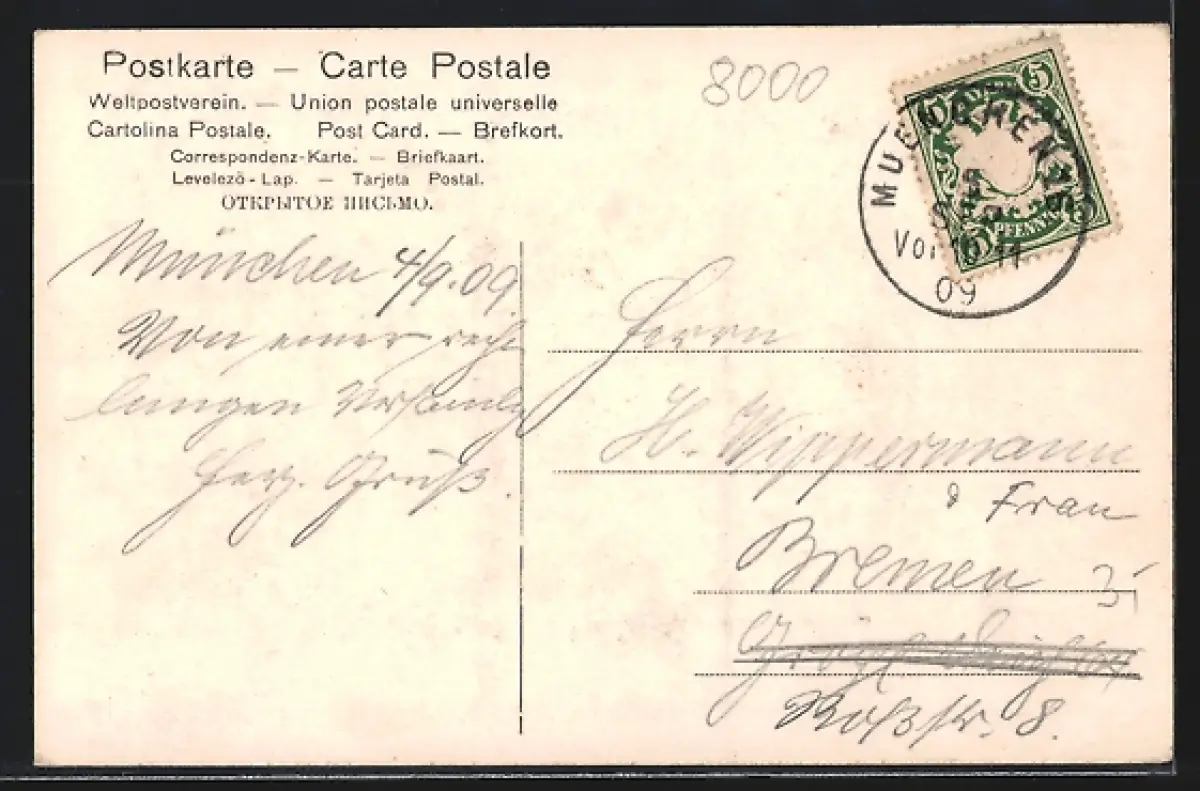 Postkarte — Carte Postale
Weltpostverein. — Union postale universelle
Cartolina Postale. Post Card. — Brefkort.
Correspondenz-Karte. — Briefkaart.
Levelezö-Lap. — Tarjeta Postal.
ОТКРЫТОЕ ПИСЬМО.
8000
5 5
5 PFENNIG 5
MUENCHEN
Vor
09
München 4/9.09.
Von einer recht
langen
Herz. Gruß.
Herrn
H. Wippermann
& Frau
Bremen
Roßstr. 8.